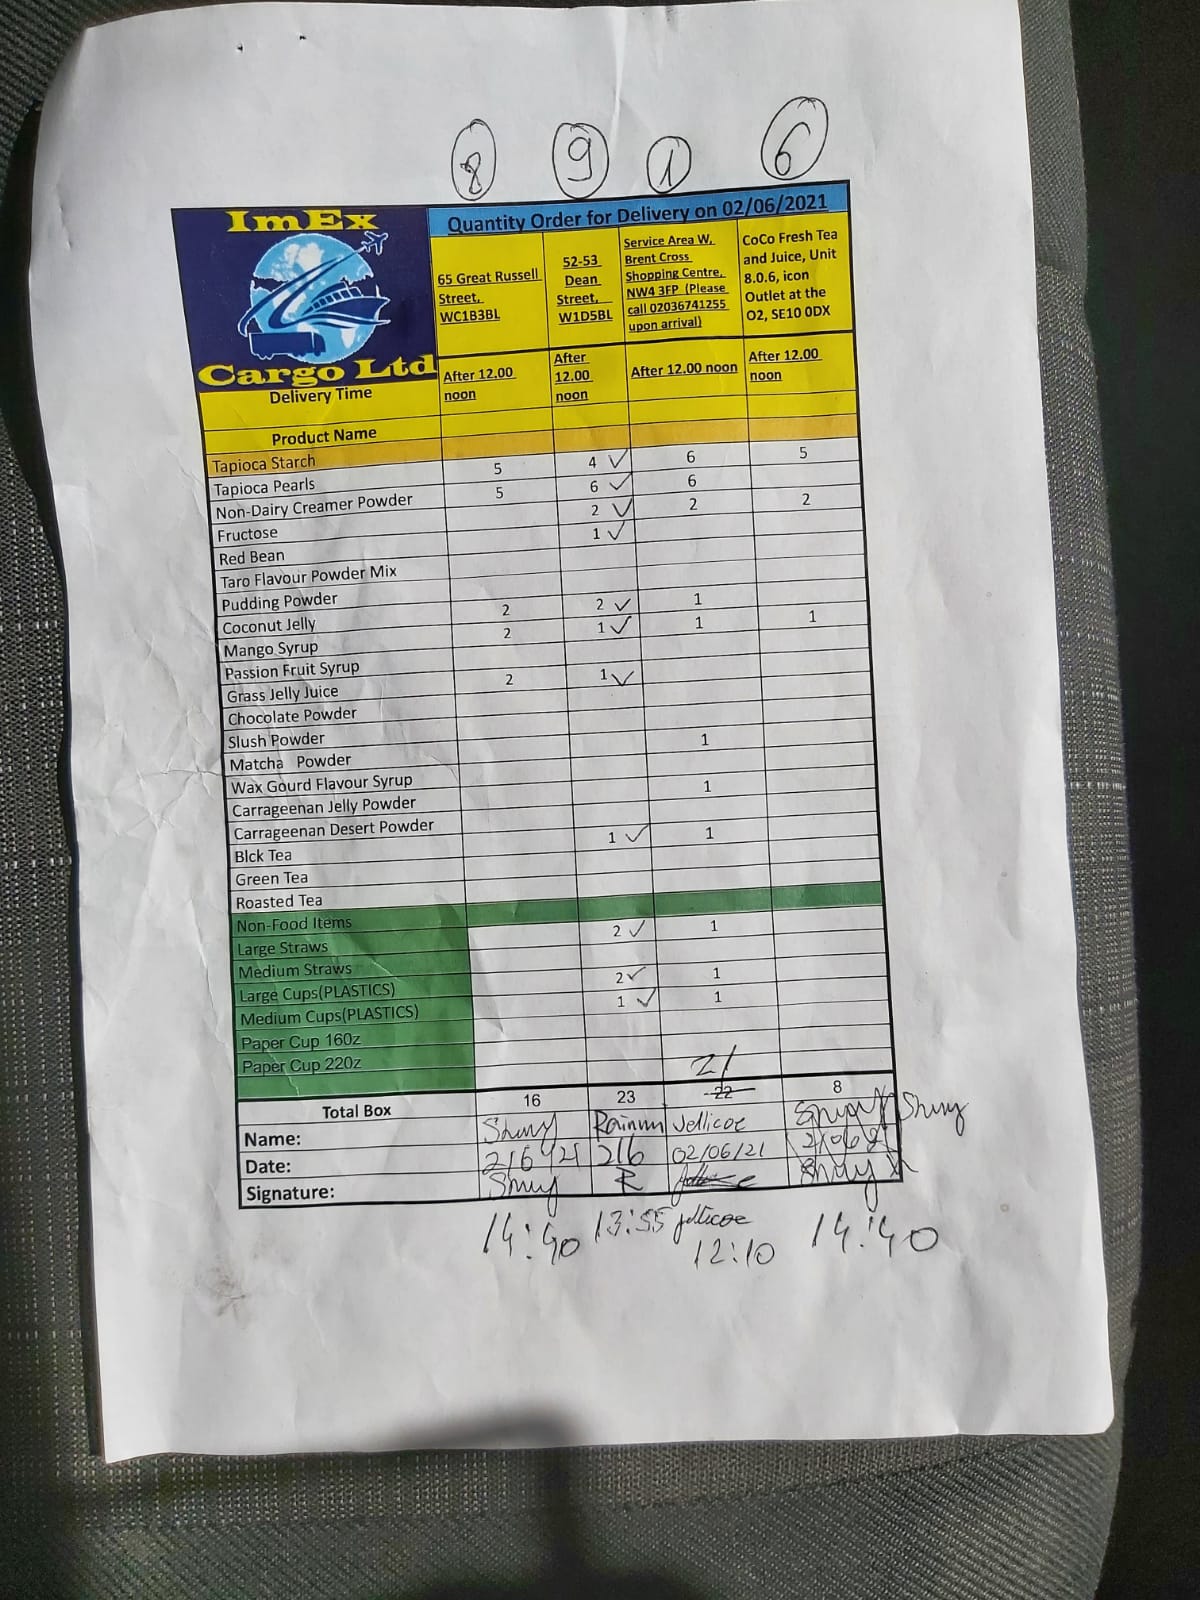 8 9 1 6
ImEx
Cargo Ltd
Quantity Order for Delivery on 02/06/2021
65 Great Russell
Street,
WC1B3BL
52-53
Dean
Street,
W1D5BL
Service Area W,
Brent Cross
Shopping Centre,
NW4 3FP (Please
call 02036741255
upon arrival)
CoCo Fresh Tea
and Juice, Unit
8.0.6, icon
Outlet at the
O2, SE10 0DX
Delivery Time
After 12.00
noon
After
12.00
noon
After 12.00 noon
After 12.00
noon
Product Name
Tapioca Starch
Tapioca Pearls 5 4 ✓ 6 5
Non-Dairy Creamer Powder 5 6 ✓ 6
Fructose 2 ✓ 2 2
Red Bean 1 ✓
Taro Flavour Powder Mix
Pudding Powder
Coconut Jelly 2 2 ✓ 1
Mango Syrup 2 1 ✓ 1 1
Passion Fruit Syrup
Grass Jelly Juice 2 1 ✓
Chocolate Powder
Slush Powder
Matcha Powder 1
Wax Gourd Flavour Syrup
Carrageenan Jelly Powder 1
Carrageenan Desert Powder
Blck Tea 1 ✓ 1
Green Tea
Roasted Tea
Non-Food Items
Large Straws 2 ✓ 1
Medium Straws
Large Cups(PLASTICS) 2 ✓ 1
Medium Cups(PLASTICS) 1 ✓ 1
Paper Cup 16Oz
Paper Cup 22Oz
21
Total Box 16 23 22 8
Name: Jellicoe
Date: 2/6/21 2/6 02/06/21
Signature: R
14:40 13:55 jellicoe 14:40
12:10